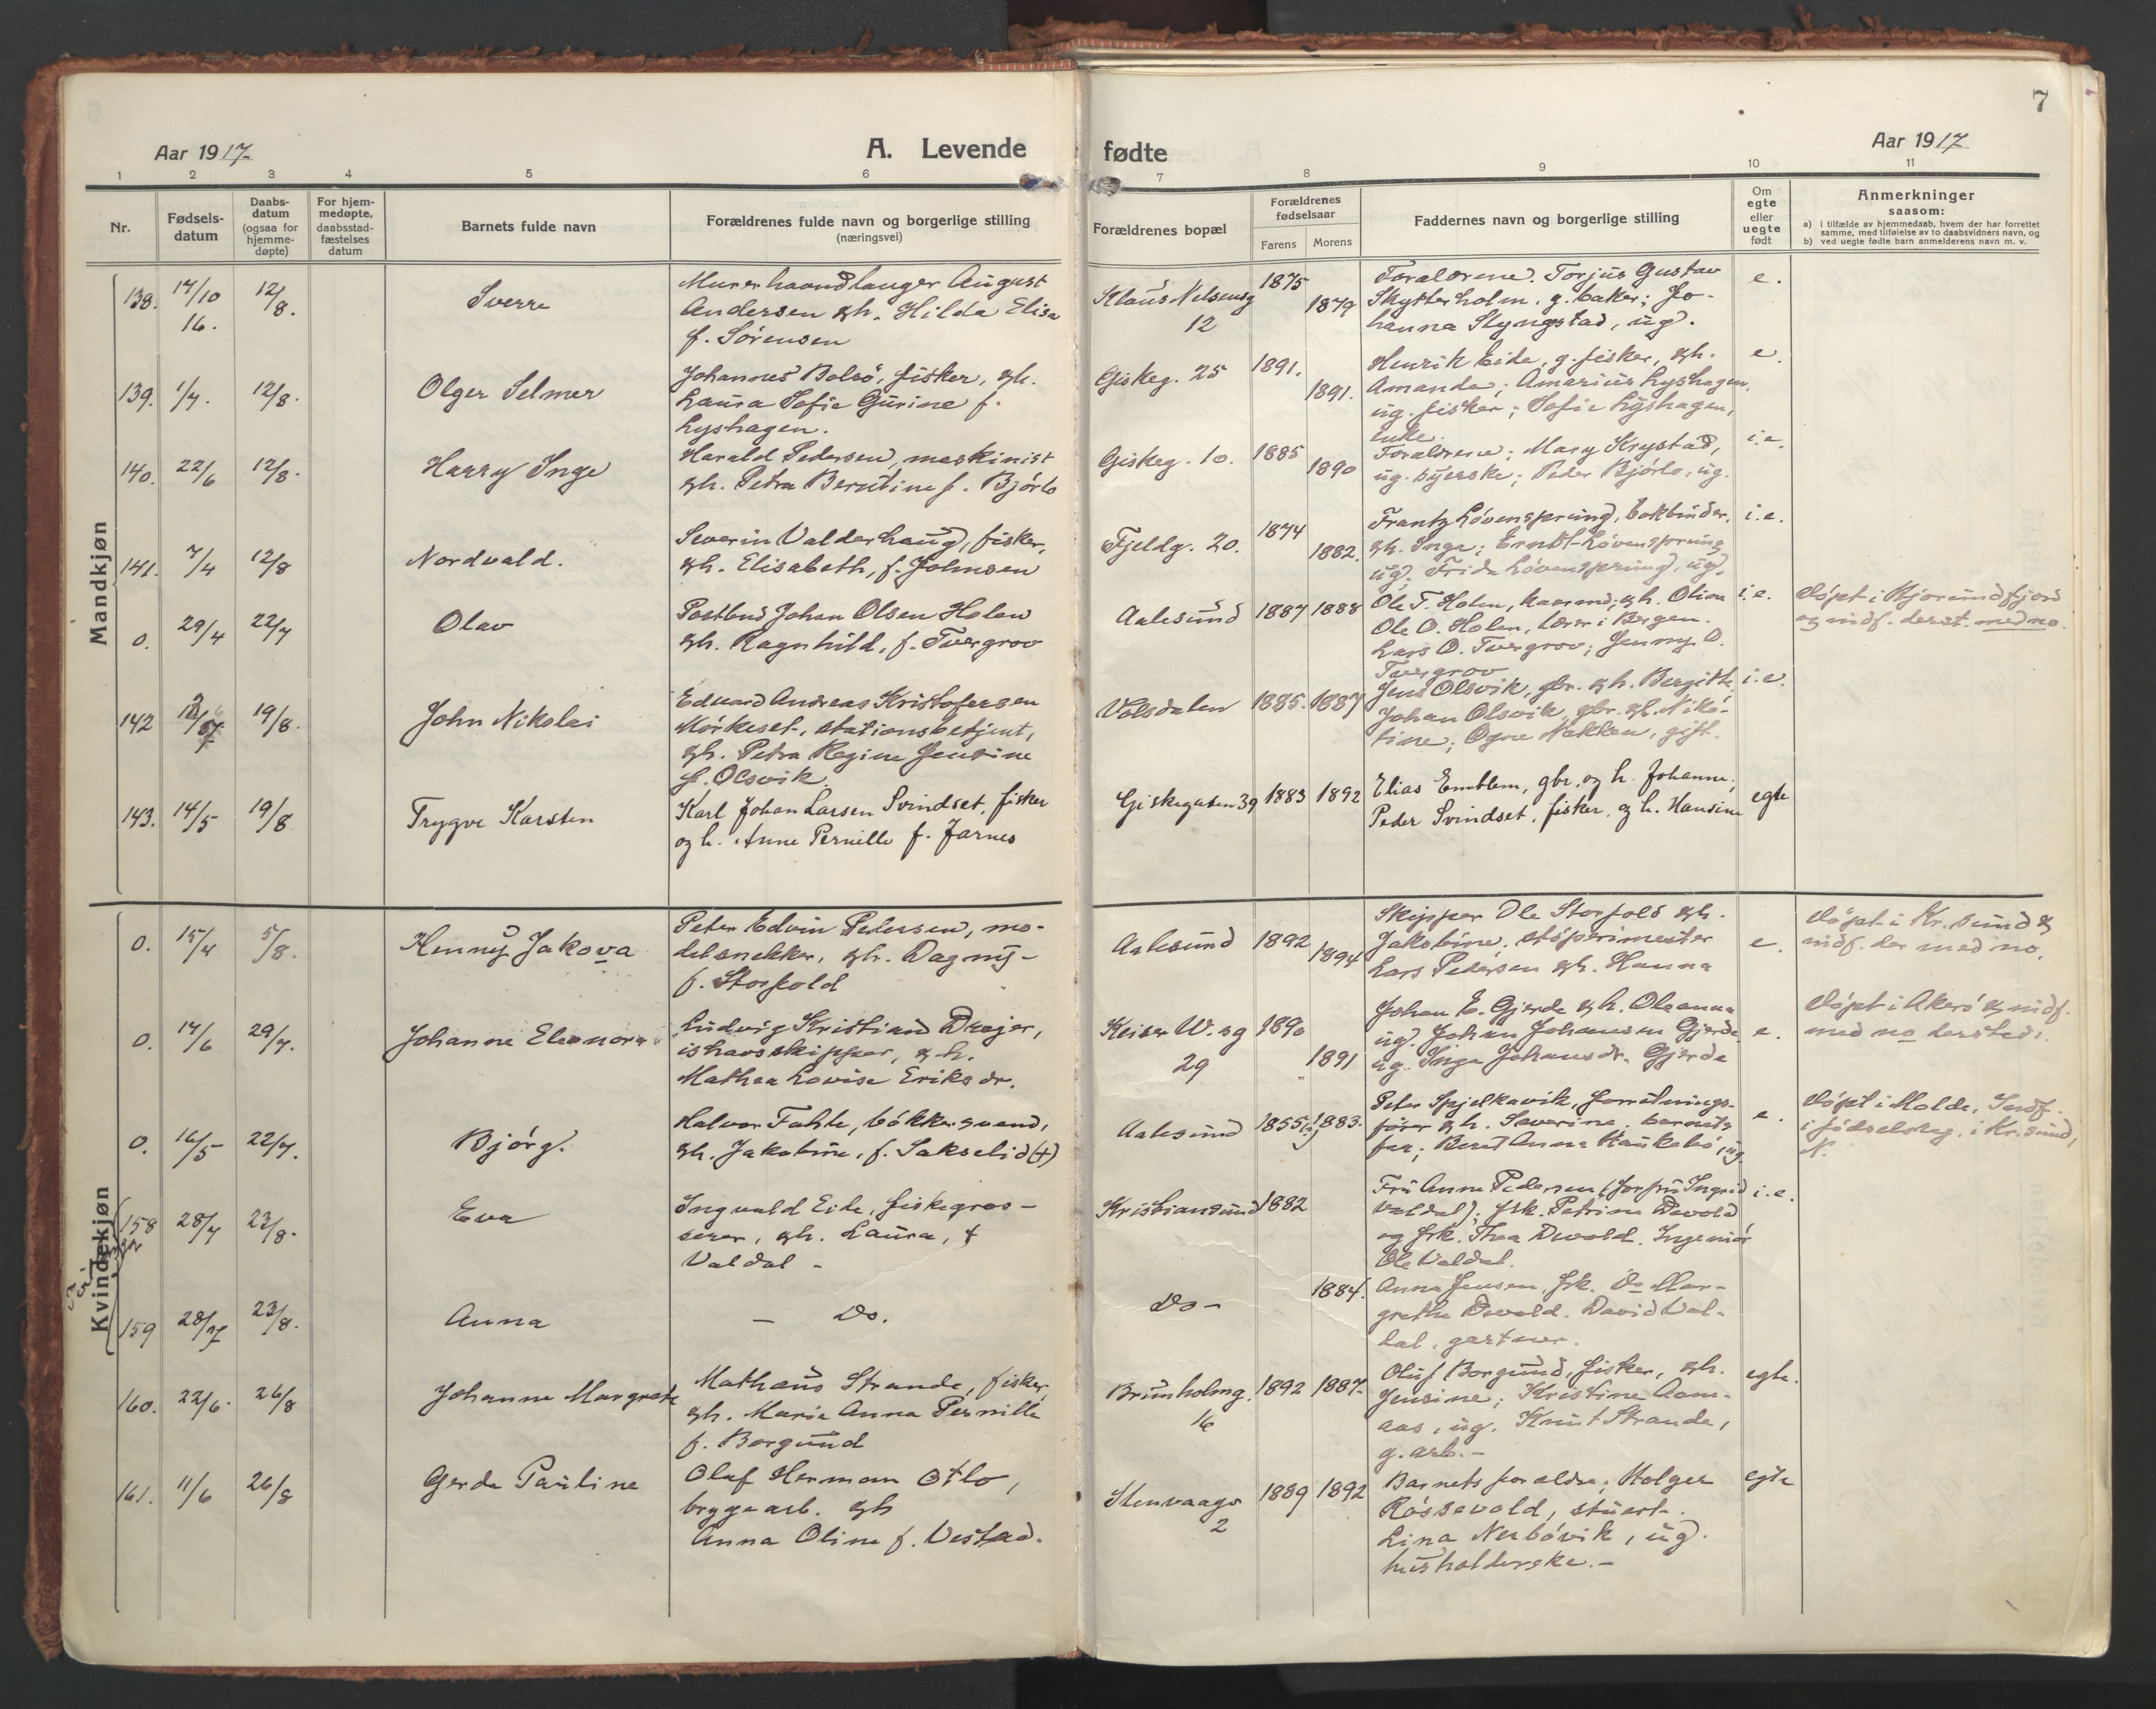 7
Aar 1917
A. Levende
fødte
Aar 1917
1 2 3 4 5 6 7 8 9 10 11
Nr.
Fødsels-
datum
Daabs-
datum
(ogsaa for
hjemme-
døpte)
For hjem-
medøpte,
daabsstad-
fæstelses
datum
Barnets fulde navn
Forældrenes fulde navn og borgerlige stilling
(næringsvei)
Forældrenes bopæl
Forældrenes
fødselsaar
Farens Morens
Faddernes navn og borgerlige stilling
Om
egte
eller
uegte
født
Anmerkninger
saasom:
a) i tilfælde av hjemmedaab, hvem der har forrettet
samme, med tilføielse av to daabsvidners navn, og
b) ved uegte fødte barn anmelderens navn m. v.
Mandkjøn
138. 17/10 16. 12/8. Sverre
Murerhaandlanger August
Andersen gh. Hilda Elisa
f. Sørensen
Klaus Nilsensg
12
1875 1879
Forældrene. Torjus Gustav
Skytterholm, g. baker; Jo-
hanna Slyngstad, ug.
e.
139. 1/7. 12/8. Olger Selmer
Johannes Bolsö, fisker, gh.
Laura Sofie Gurine f.
Lyshagen.
Giskeg. 25 1891. 1891.
Henrik Eide, g. fisker, gh.
Amanda; Amarius Lyshagen,
ug. fisker; Sofie Lyshagen,
enke.
e.
140. 22/6 12/8. Harry Inge
Harald Pedersen, maskinist
gh. Petra Berntine f. Bjørlo
Giskeg. 10. 1885 1890
Forældrene; Mary Krystad,
ug. syerske; Peder Bjørlo, ug.
i.e.
141. 7/4 12/8 Nordvald.
Severin Valderhaug, fisker,
gh. Elisabeth, f. Johnsen
Fjeldg. 20. 1874 1882.
Frantz Lövensprung, bokbinder,
gh. Inga; Ernst Lövensprung
ug; Frida Lövensprung, ug.
i.e.
0. 29/4 22/7 Olav
Postbud Johan Olsen Holen
gh. Ragnhild, f. Tvergrov
Aalesund 1887 1888
Ole T. Holen, kaarmd; gh. Olina
Ole O. Holen, lærer i Bergen.
Lars O. Tvergrov; Jenny O.
Tvergrov
i.e.
Døpt i Hjørundfjord
og indf. derst. med no.
142 19/8. John Nikolai
Edvard Andreas Kristofersen
Mørkeset, stationsbetjent,
gh. Petra Regine Jensine
f. Olsvik
Volsdalen 1885. 1887
Jens Olsvik, gbr. gh. Bergitte
Johan Olsvik, gbr. gh. Niko-
line; Ogne Nakken, gift.
i.e.
143. 14/5 19/8 Trygve Karsten
Karl Johan Larsen Svindset, fisker
og h. Anne Pernille f. Jarnes
Giskegaten 39 1883 1892
Elias Emblem, gbr. og h. Johanne;
Peder Svindset, fisker, og h. Hansine
egte
Kvindekjøn
0. 15/4 5/8. Henny Jakova
Peter Edvin Pedersen, mo-
delsnekker, gh. Dagny
f. Storfold
Aalesund 1892 1894
Skipper Ole Storfold gh.
Jakobine. støperimester
Lars Pedersen gh. Hanna
e.
Døpt i Kr.sund og
indf. der med no.
0. 17/6 29/7. Johanne Eleonora
Ludvig Kristian Drejer,
ishavsskipper, gh.
Mathea Lovise Eriksdr.
Keiser W.sg
29
1890 1891
Johan E. Gjerde gh. Oleanna
ug. Johan Johansen Gjerde,
ug. Inga Johansdr. Gjerde
e.
Døpt i Akerö og indf.
med no dersteds.
0. 16/5 22/7. Bjørg.
Halvor Fahle, bökkersvend,
gh. Jakobine, f. Sakselid (+)
Aalesund 1855 1883.
Peter Spjelkavik, forretnings-
fører gh. Severine; barnets
far; Beret Anna Haukebö, ug.
e.
Døpt i Molde. Indf.
i fødselsreg. i Kr.sund,
N.
158 28/7 23/8. Eva
Ingvald Eide, fiskegros-
serer, gh. Laura, f
Valdal -
Kristiansund 1882
Fru Anna Pedersen (for fru Ingrid
Valdal); frk. Petrine Devold
og frk. Thea Devold. Ingeniør
Ole Valdal.
i.e.
159 28/7 23/8. Anna
- Do.
Do- 1884.
Anna Jensen, frk. Do Mar-
grethe Devold. David Val-
dal, gartner.
160. 22/6. 26/8 Johanne Margrete
Mathæus Strande, fisker,
gh. Marie Anna Pernille
f. Borgund
Brunholmg.
16
1892 1887.
Oluf Borgund, fisker, gh.
Jensine; Kristine Aam-
aas, ug. Knut Strande,
g. arb.-
egte.
161. 11/6 26/8 Gerda Pauline
Olaf Herman Otlo,
bryggearb. gh
Anna Oline f. Vestad.
Stenvaags
2
1889 1892
Barnets forældre; Holger
Røssevold, stuert.
Lina Nerbövik, ug.
husholderske.-
egte